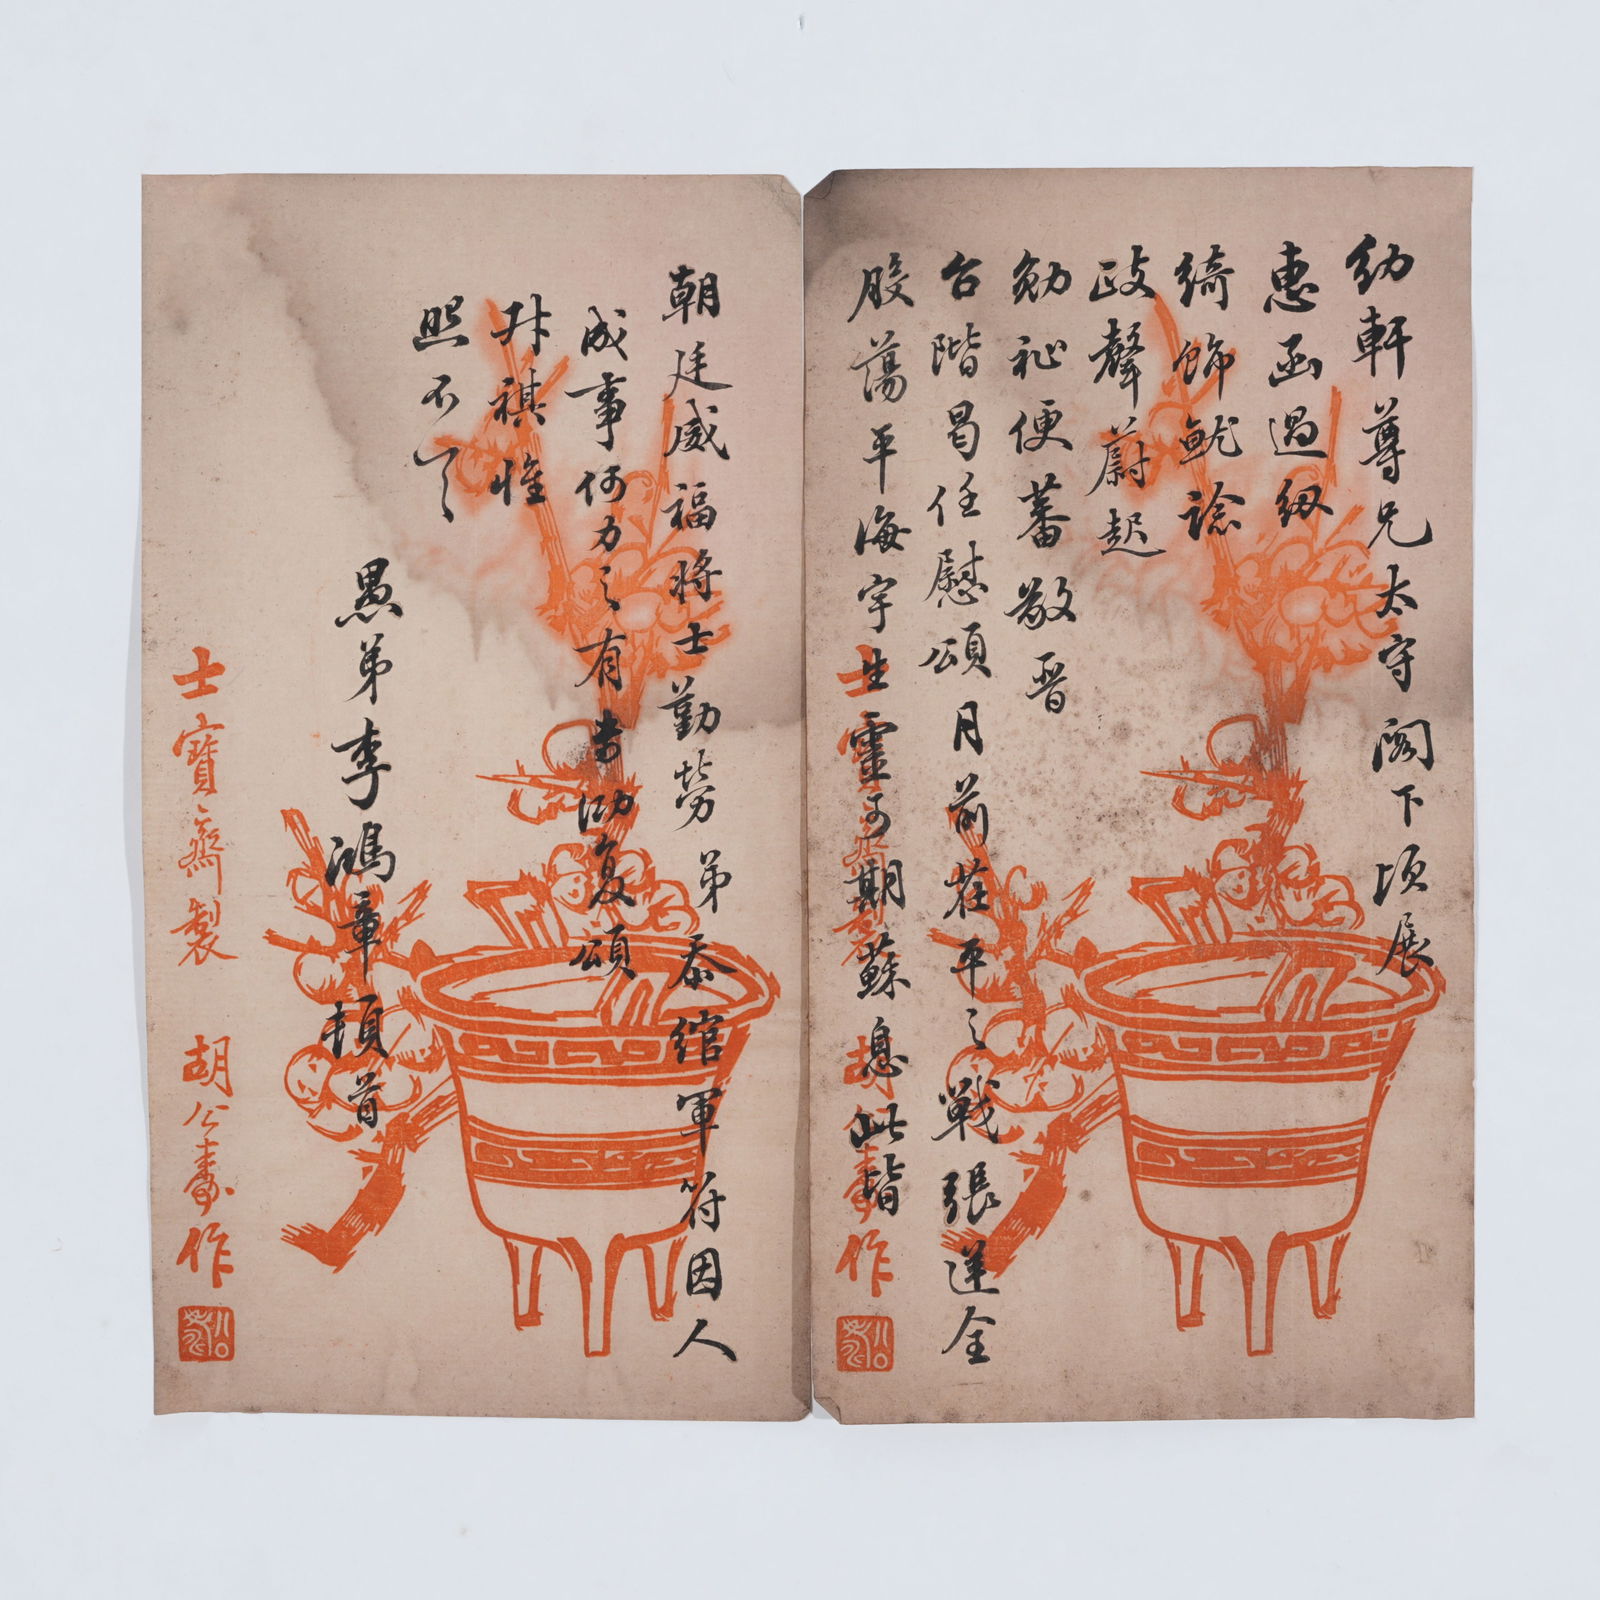 幼軒尊兄太守閣下頃展
惠函過紉
綺飾就諗
政聲蔚起
勛祉便蕃敬晉
台階曷任慰頌月前茌平之戰張逆全
股蕩平海宇生靈可期蘇息此皆
士寶齋製 胡公壽作
朝廷威福將士勤勞弟忝綰軍符因人
成事何力之有耑泐复頌
升祺惟
照不宣
愚弟李鴻章頓首
士寶齋製 胡公壽作